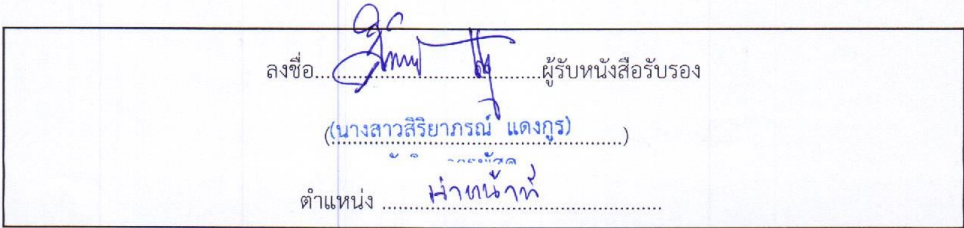 ลงชื่อ....................................ผู้รับหนังสือรับรอง
(นางสาวสิริยาภรณ์ แดงกูร)
ตำแหน่ง ....................................